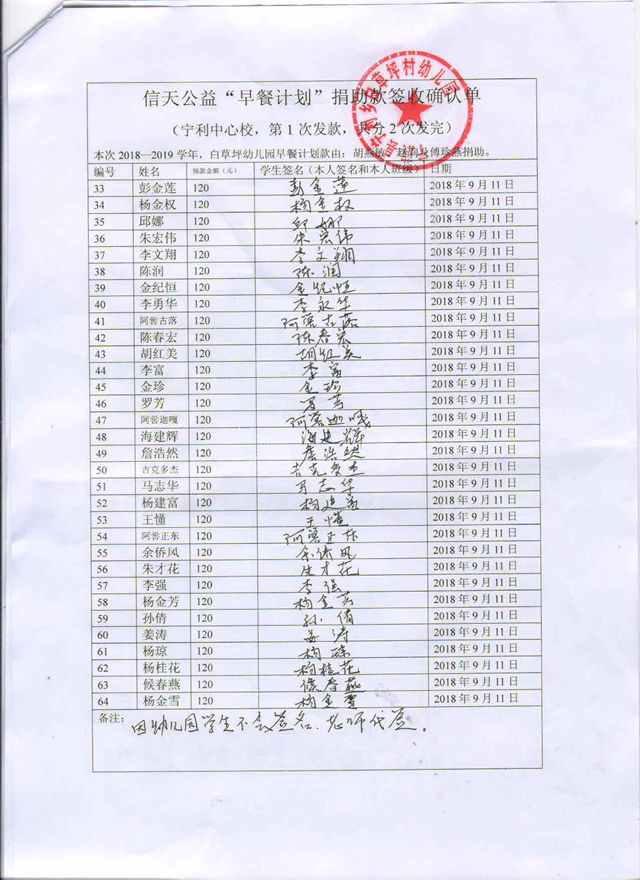 信天公益“早餐计划”捐助款签收确认单
（宁利中心校，第1次发款，共分2次发完）
本次2018—2019学年，白草坪幼儿园早餐计划款由：胡燕敏、赵莉及傅珍燕捐助。
编号 姓名 领款金额（元） 学生签名（本人签名和本人班级） 日期
33 彭金莲 120 彭金莲 2018年9月11日
34 杨金权 120 杨金权 2018年9月11日
35 邱娜 120 邱娜 2018年9月11日
36 朱宏伟 120 朱宏伟 2018年9月11日
37 李文翔 120 李文翔 2018年9月11日
38 陈润 120 陈润 2018年9月11日
39 金纪恒 120 金纪恒 2018年9月11日
40 李勇华 120 李永华 2018年9月11日
41 阿喾古落 120 阿喾古落 2018年9月11日
42 陈春宏 120 陈春宏 2018年9月11日
43 胡红美 120 胡红美 2018年9月11日
44 李富 120 李富 2018年9月11日
45 金珍 120 金珍 2018年9月11日
46 罗芳 120 罗芳 2018年9月11日
47 阿喾迦嘎 120 阿喾迦嘎 2018年9月11日
48 海建辉 120 海建辉 2018年9月11日
49 詹浩然 120 詹浩然 2018年9月11日
50 吉克多杰 120 吉克多杰 2018年9月11日
51 马志华 120 马志华 2018年9月11日
52 杨建富 120 杨建富 2018年9月11日
53 王懂 120 王懂 2018年9月11日
54 阿喾正东 120 阿喾正东 2018年9月11日
55 余侨风 120 余侨风 2018年9月11日
56 朱才花 120 朱才花 2018年9月11日
57 李强 120 李强 2018年9月11日
58 杨金芳 120 杨金芳 2018年9月11日
59 孙倩 120 孙倩 2018年9月11日
60 姜涛 120 姜涛 2018年9月11日
61 杨琼 120 杨琼 2018年9月11日
62 杨桂花 120 杨桂花 2018年9月11日
63 候春燕 120 候春燕 2018年9月11日
64 杨金雪 120 杨金雪 2018年9月11日
备注：因幼儿园学生不会签名、老师代签。